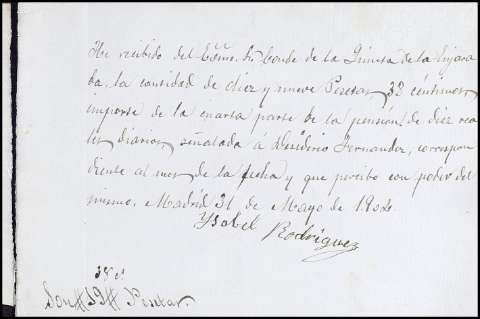 He recibido del Exmo. Sr. Conde de la Quinta de la Enjara
ba, la cantidad de diez y nueve Pesetas, 38 céntimos,
importe de la cuarta parte de la pensión de diez rea
les diarios, señalada á Desiderio Fernandez, correspon
diente al mes de la fecha y que percibo con poder del
mismo. Madrid 31 de Mayo de 1904.
Ysabel Rodriguez
38 c.
Son # 19 # Pesetas.